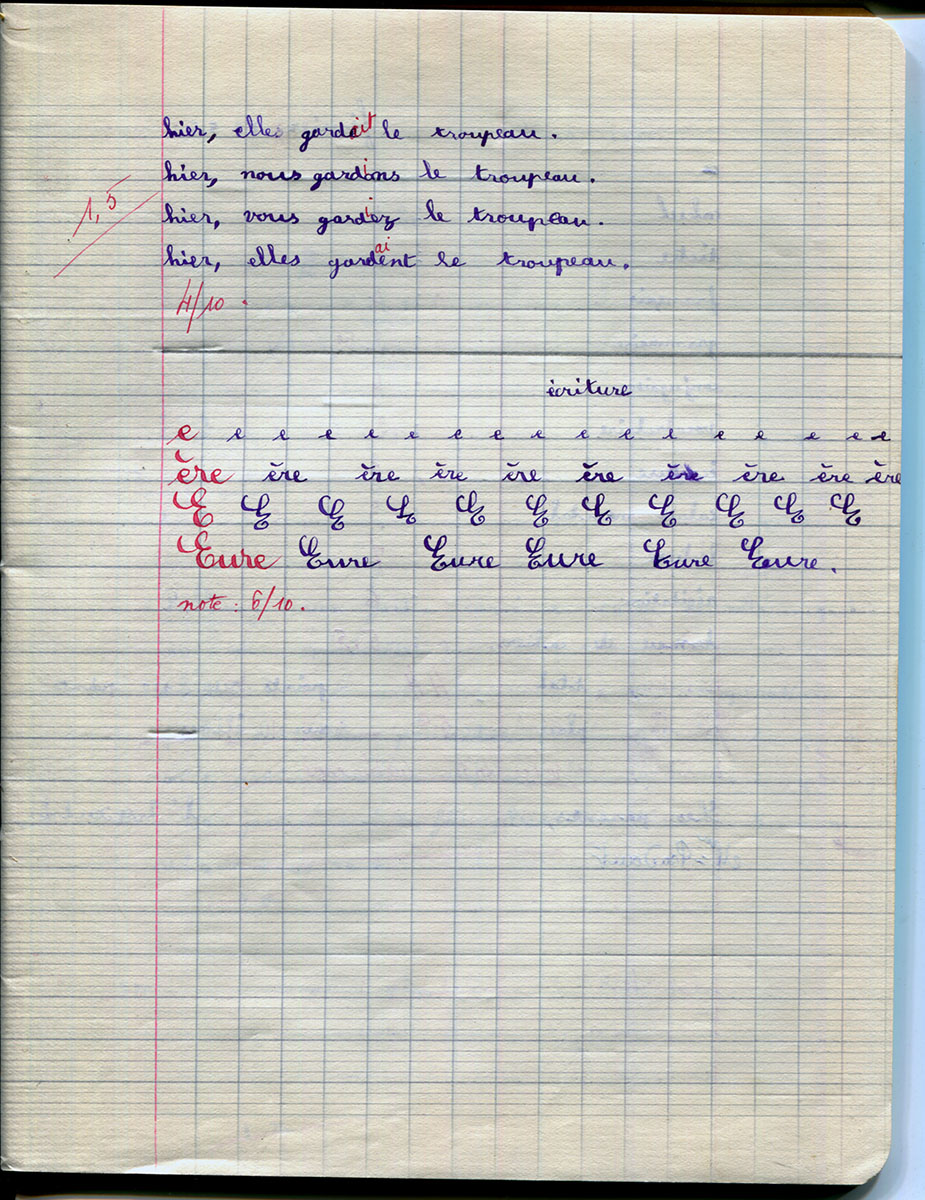 hier, elles gardait le troupeau.
hier, nous gardions le troupeau.
1,5
hier, vous gardiez le troupeau.
hier, elles gardaient le troupeau.
4/10.
écriture
e e e e e e e e e e e e e e e e
ère ère ère ère ère ère ère ère ère ère
E E E E E E E E E E E
Eure Eure Eure Eure Eure Eure.
note : 6/10.